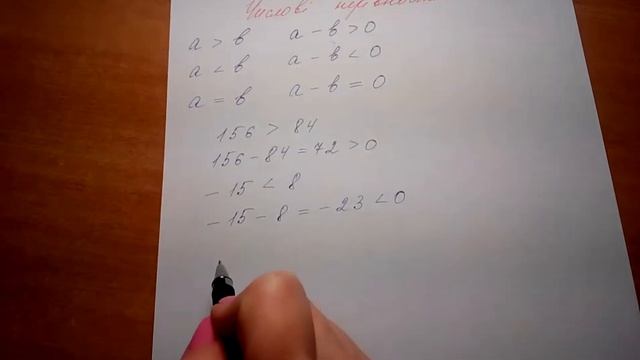 Числові нерівності
a > b a - b > 0
a < b a - b < 0
a = b a - b = 0
156 > 84
156 - 84 = 72 > 0
- 15 < 8
- 15 - 8 = - 23 < 0